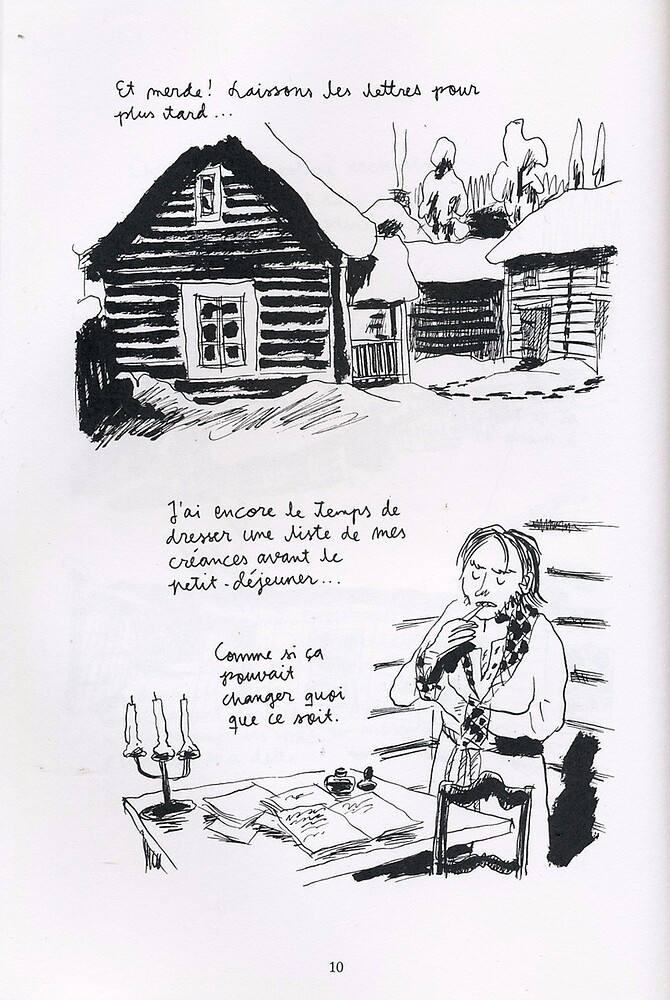 Et merde! Laissons les lettres pour
plus tard...
J'ai encore le temps de
dresser une liste de mes
créances avant le
petit-déjeuner...
Comme si ça
pouvait
changer quoi
que ce soit.
10